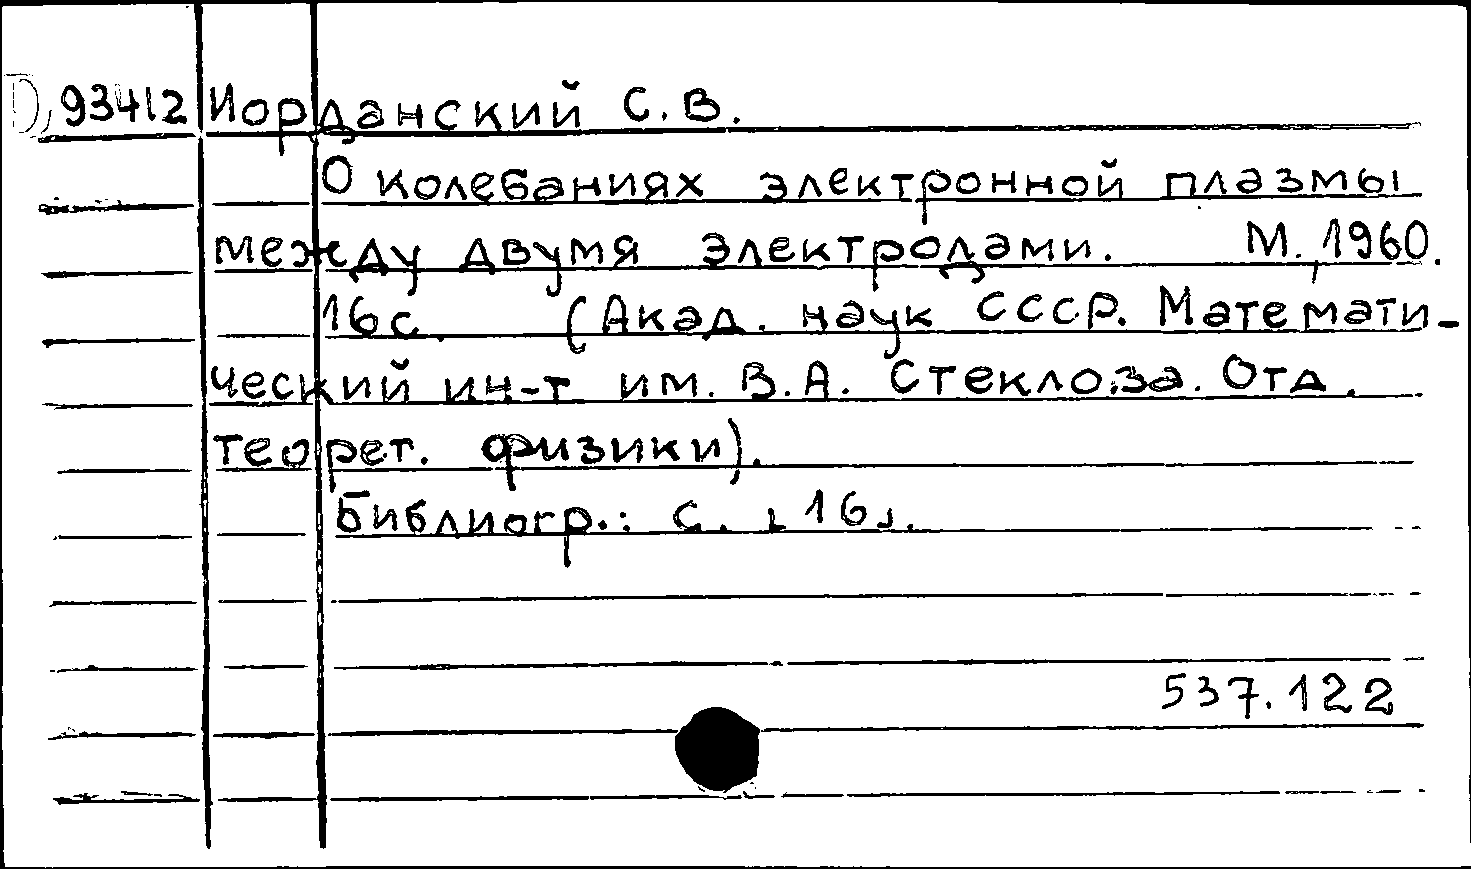 D, 93412 Иорданский С.В.
О колебаниях электронной плазмы
между двумя электродами. М., 1960.
16 с. (Акад. наук СССР. Математи-
ческий ин-т им. В.А. Стеклова. Отд.
теорет. физики).
Библиогр.: с. [16].
537.122